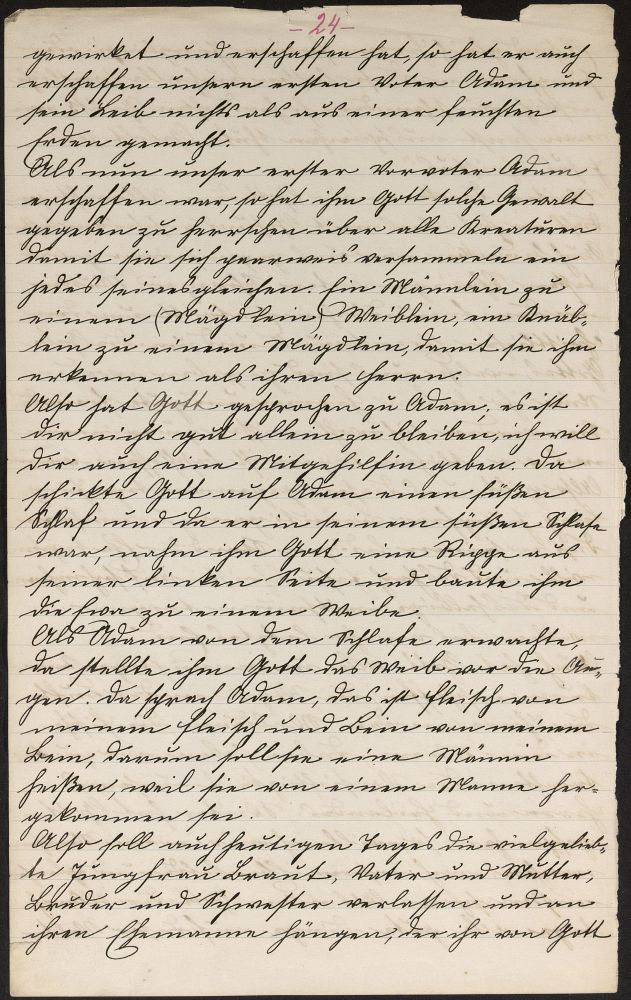 - 24 -
gewirket und erschaffen hat, so hat er auch
erschaffen unsern ersten Vater Adam und
sein Leib nichts als aus einer feuchten
Erden gemacht.
Als nun unser erster Vorvater Adam
erschaffen war, so hat ihm Gott solche Gewalt
gegeben zu herrschen über alle Kreaturen
damit sie sich paarweis versammeln ein
jedes seinesgleichen. Ein Männlein zu
einem (Mägdlein) Weiblein, ein Knäb-
lein zu einem Mägdlein, damit sie ihm
erkennen als ihren Herrn.
Also hat Gott gesprochen zu Adam, es ist
dir nicht gut allein zu bleiben, ich will
dir auch eine Mitgehilfin geben. Da
schickte Gott auf Adam einen süßen
Schlaf und da er in seinem süßen Schlafe
war, nahm ihm Gott eine Rippe aus
seiner linken Seite und baute ihm
die Eva zu einem Weibe.
Als Adam von dem Schlafe erwachte,
da stellte ihm Gott das Weib vor die Au-
gen. Da sprach Adam, das ist Fleisch von
meinem Fleisch und Bein von meinem
Bein, darum soll sie eine Männin
heißen, weil sie von einem Manne her-
gekommen sei.
Also soll auch heutigen Tages die vielgelieb-
te Jungfrau Braut, Vater und Mutter,
Bruder und Schwester verlassen und an
ihren Ehemanne hängen, der ihr von Gott